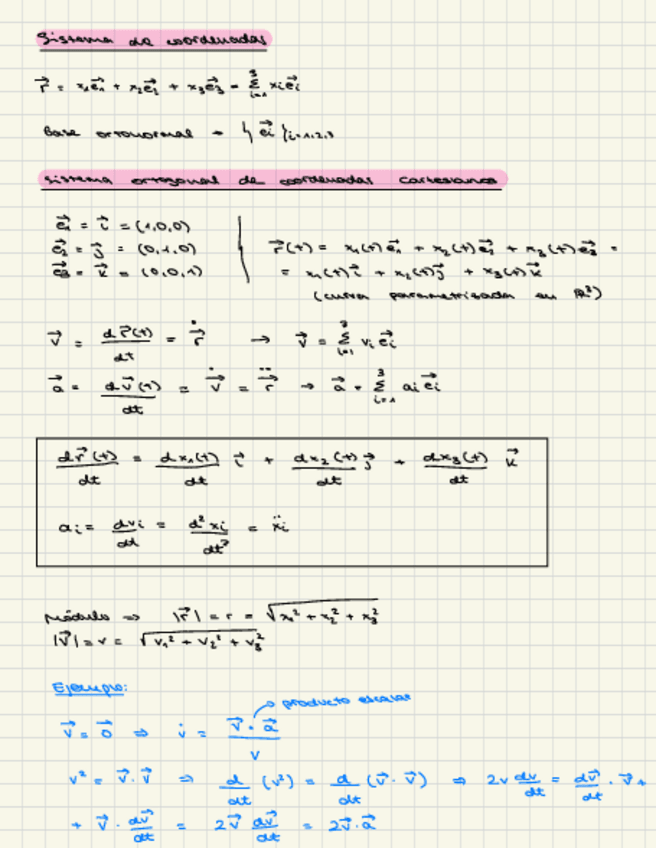 Sistema de coordenadas
r⃗ = x₁e⃗₁ + x₂e⃗₂ + x₃e⃗₃ = Σ³ᵢ₌₁ xᵢe⃗ᵢ
Base ortonormal → {e⃗ᵢ}ᵢ₌₁,₂,₃
Sistema ortogonal de coordenadas cartesianas
e⃗₁ = i⃗ = (1,0,0)
e⃗₂ = j⃗ = (0,1,0)
e⃗₃ = k⃗ = (0,0,1)
r⃗(t) = x₁(t)e⃗₁ + x₂(t)e⃗₂ + x₃(t)e⃗₃ =
= x₁(t)i⃗ + x₂(t)j⃗ + x₃(t)k⃗
(curva parametrizada en ℝ³)
v⃗ = dr⃗(t)/dt = ṙ⃗ → v⃗ = Σ³ᵢ₌₁ vᵢe⃗ᵢ
a⃗ = dv⃗(t)/dt = v̇⃗ = r̈⃗ → a⃗ = Σ³ᵢ₌₁ aᵢe⃗ᵢ
dr⃗(t)/dt = dx₁(t)/dt i⃗ + dx₂(t)/dt j⃗ + dx₃(t)/dt k⃗
aᵢ = dvᵢ/dt = d²xᵢ/dt² = ẍᵢ
Módulo ⇒ |r⃗| = r = √(x₁² + x₂² + x₃²)
|v⃗| = v = √(v₁² + v₂² + v₃²)
Ejemplo:
producto escalar
v⃗ = 0⃗ ⇒ v̇ = v⃗ · a⃗ / v
v² = v⃗ · v⃗ ⇒ d/dt (v²) = d/dt (v⃗ · v⃗) ⇒ 2v dv/dt = dv⃗/dt · v⃗ +
+ v⃗ · dv⃗/dt = 2v⃗ dv⃗/dt = 2v⃗ · a⃗